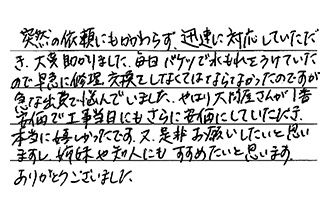 突然の依頼にもかかわらず、迅速に対応していただ
き、大変助かりました。毎日バケツで水もれをうけていた
ので早急に修理、交換をしなくてはならなかったのですが
急な出費で悩んでいました。やはり大問屋さんが1番
安価で工事当日にもさらに安価にしていただき、
本当に嬉しかったです。又、是非お願いしたいと思い
ますし、姉妹や知人にもすすめたいと思います。
ありがとうございました。